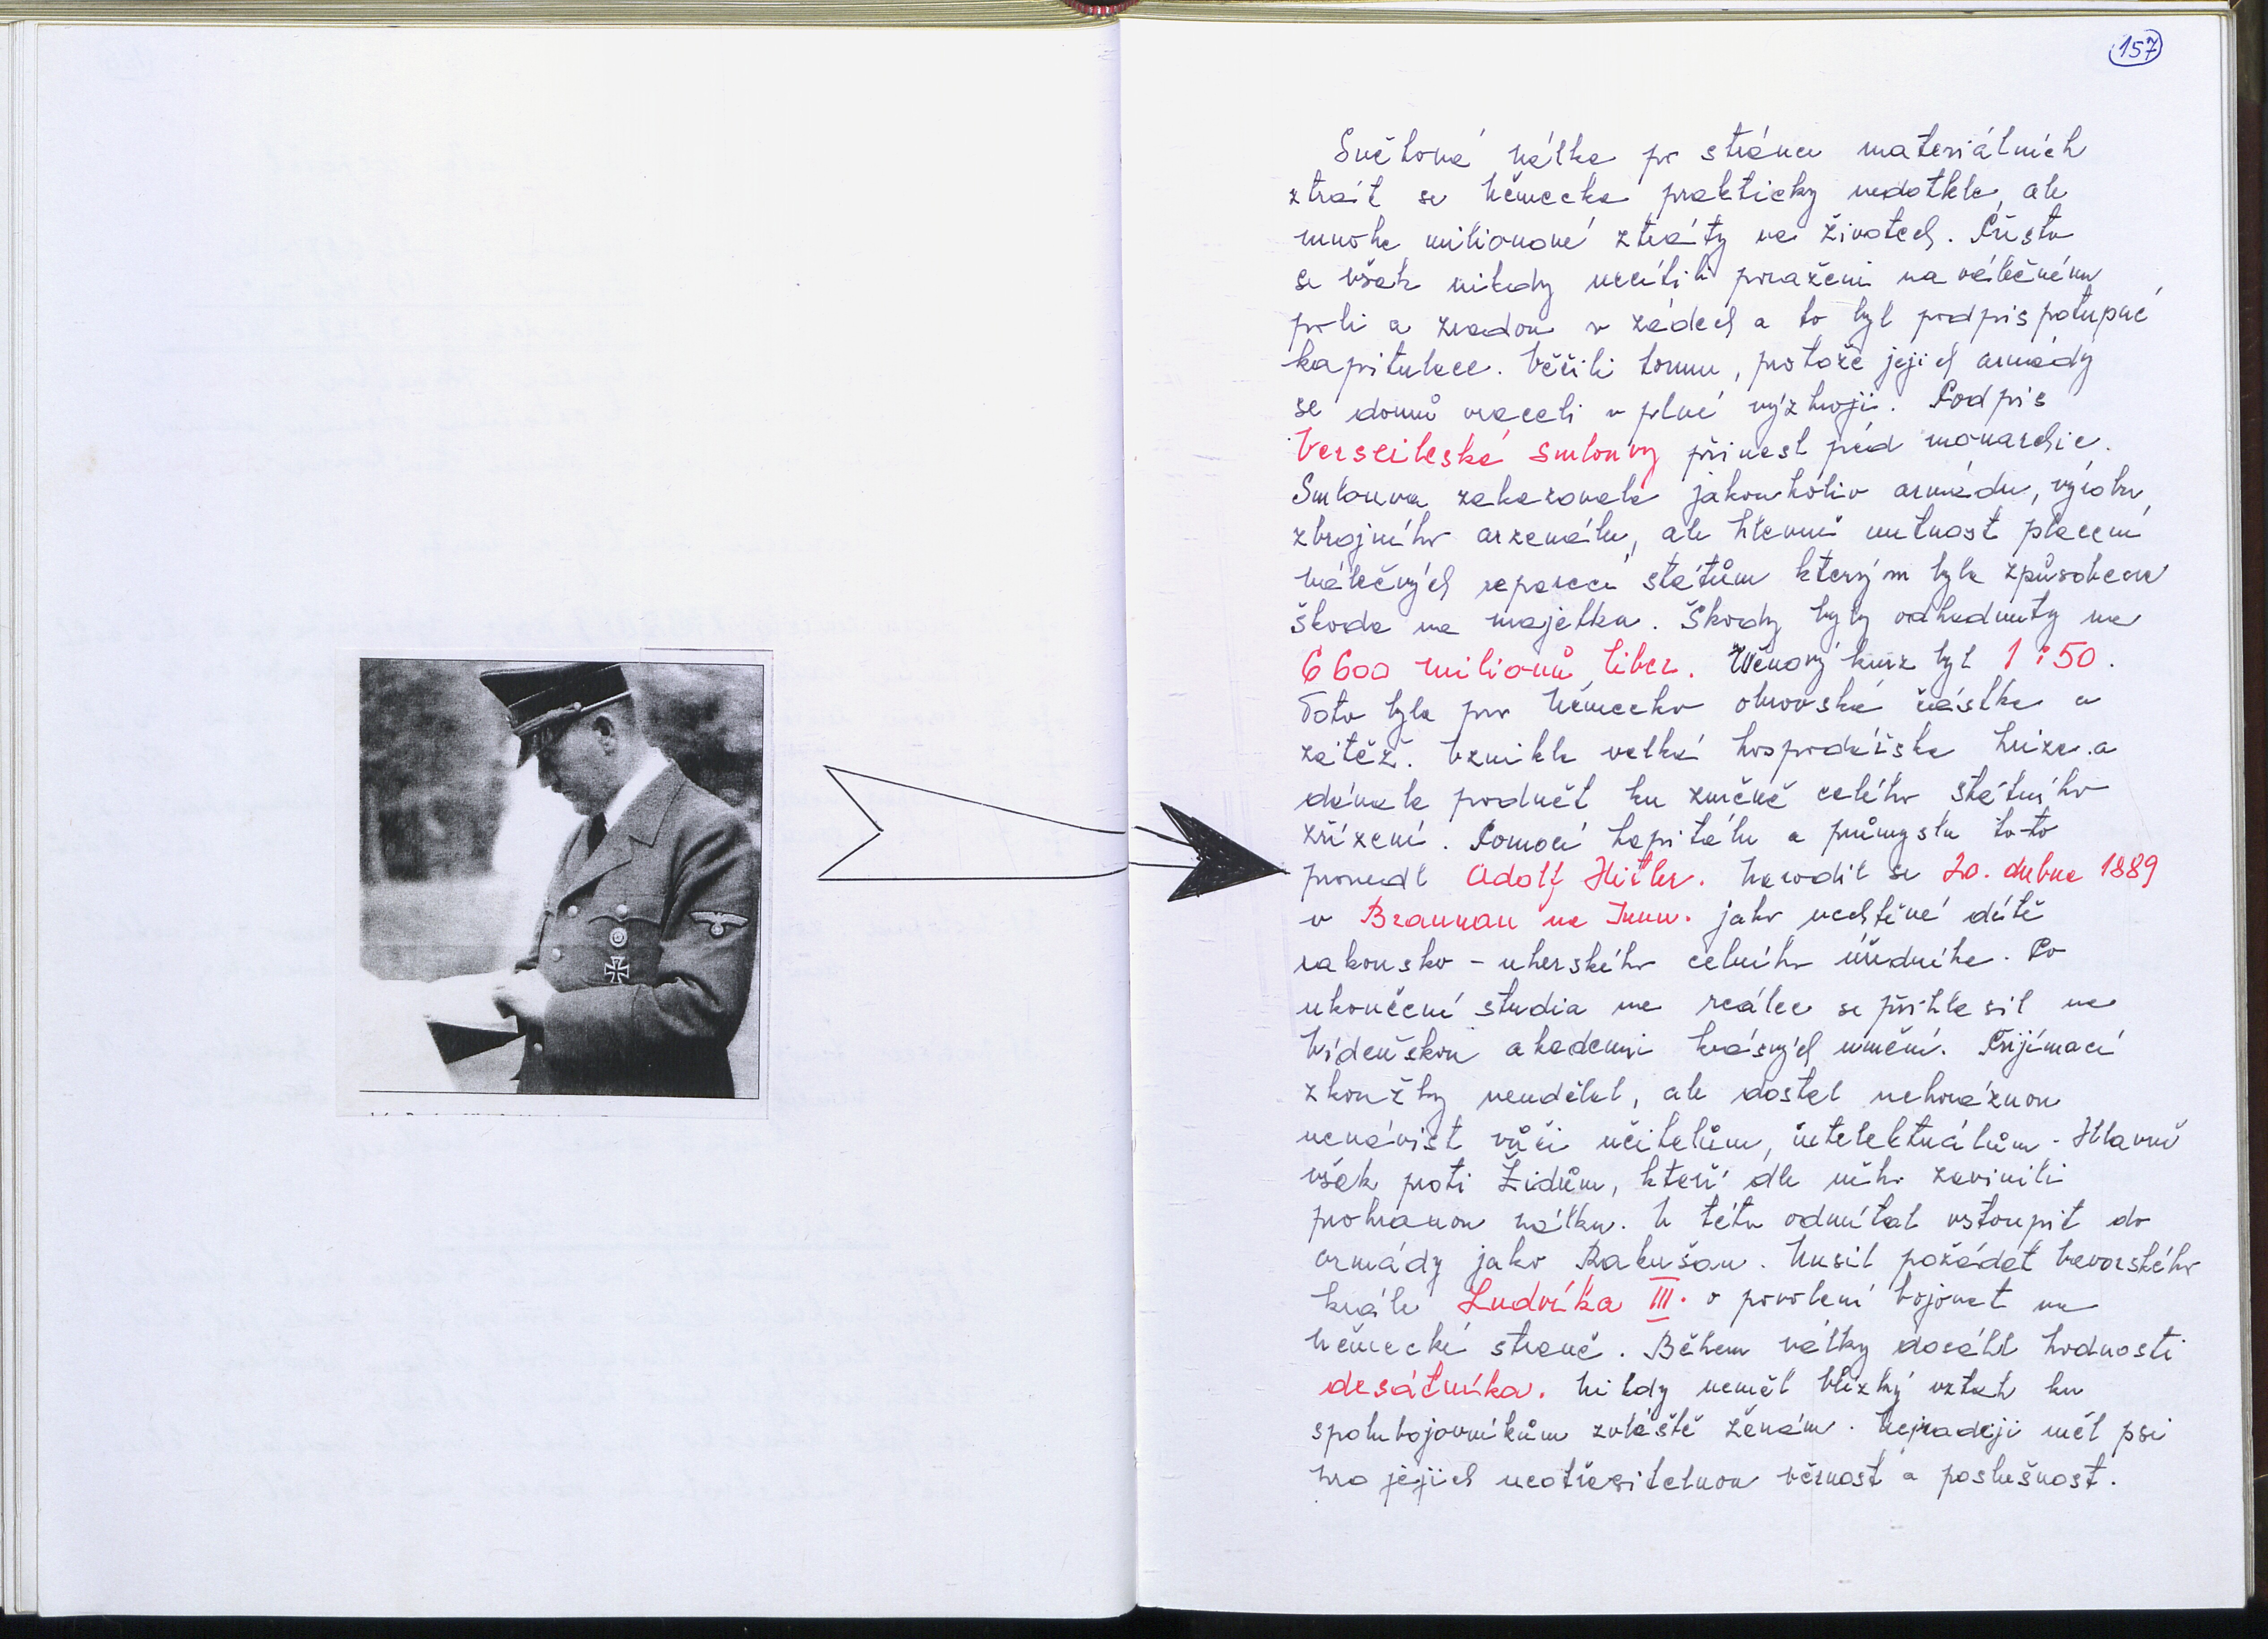 157
Světová válka po stránce materiálních
ztrát se Německa prakticky nedotkla, ale
mnoha milionové ztráty na životech. Přesto
se však nikdy necítili poraženi na válečném
poli a zradou v zádech a to byl podpis potupné
kapitulace. Věřili tomu, protože jejich armády
se domů vraceli v plné výzbroji. Podpis
Verseileské smlouvy přinesl pád monarchie.
Smlouva zakazovala jakoukoliv armádu, výrobu
zbrojního arzenálu, ale hlavně nutnost placení
válečných reparací státům kterým byla způsobena
škoda na majetku. Škody byly odhadnuty na
6 600 milionů liber. Měnový kurz byl 1 : 50.
Toto byla pro Německo obrovská částka a
zátěž. Vznikla velká hospodářska krize a
dávala podnět ku změně celého státního
zřízení. Pomocí kapitálu a průmyslu to-to
provedl Adolf Hitler. Narodil se 20. dubna 1889
v Braunau na Innu. jako nechtěné dítě
rakousko - uherského celního úředníka. Po
ukončení studia na reálce se přihlasil na
Vídeňskou akademii krásných umění. Přijímací
zkoužky neudělal, ale dostal nehoráznou
nenávist vůči učitelům, intelektuálům. Hlavně
však proti Židům, kteří dle něho zavinili
prohranou válku. V této odmítal vstoupit do
armády jako Rakušan. Musil požádat bavorského
krále Ludvíka III. o povolení bojovat na
německé straně. Během války dosáhl hodnosti
desátníka. Nikdy neměl blízký vztah ku
spolubojovníkům zvláště ženám. Nejraději měl psi
pro jejich neotřesitelnou věrnost a poslušnost.